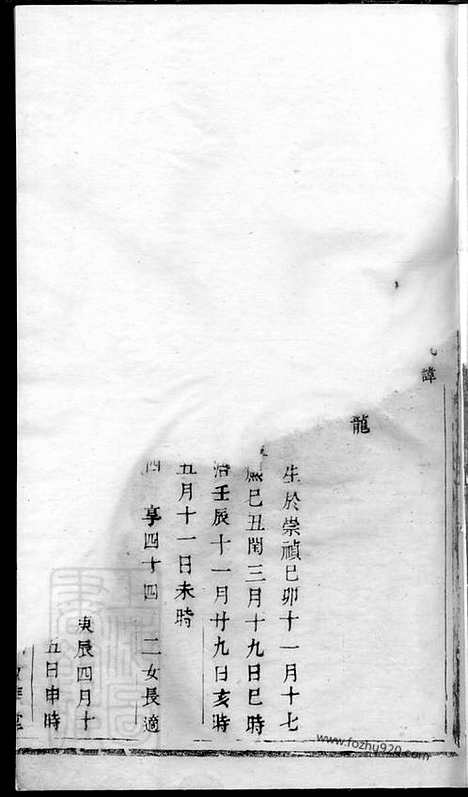 諱
龍
生於崇禎己卯十一月十七
熈己丑閏三月十九日巳時
治壬辰十一月廿九日亥時
五月十一日未時
四 享四十四 二女長適
庚辰四月十
五日申時
堂
www.fozhu920.com